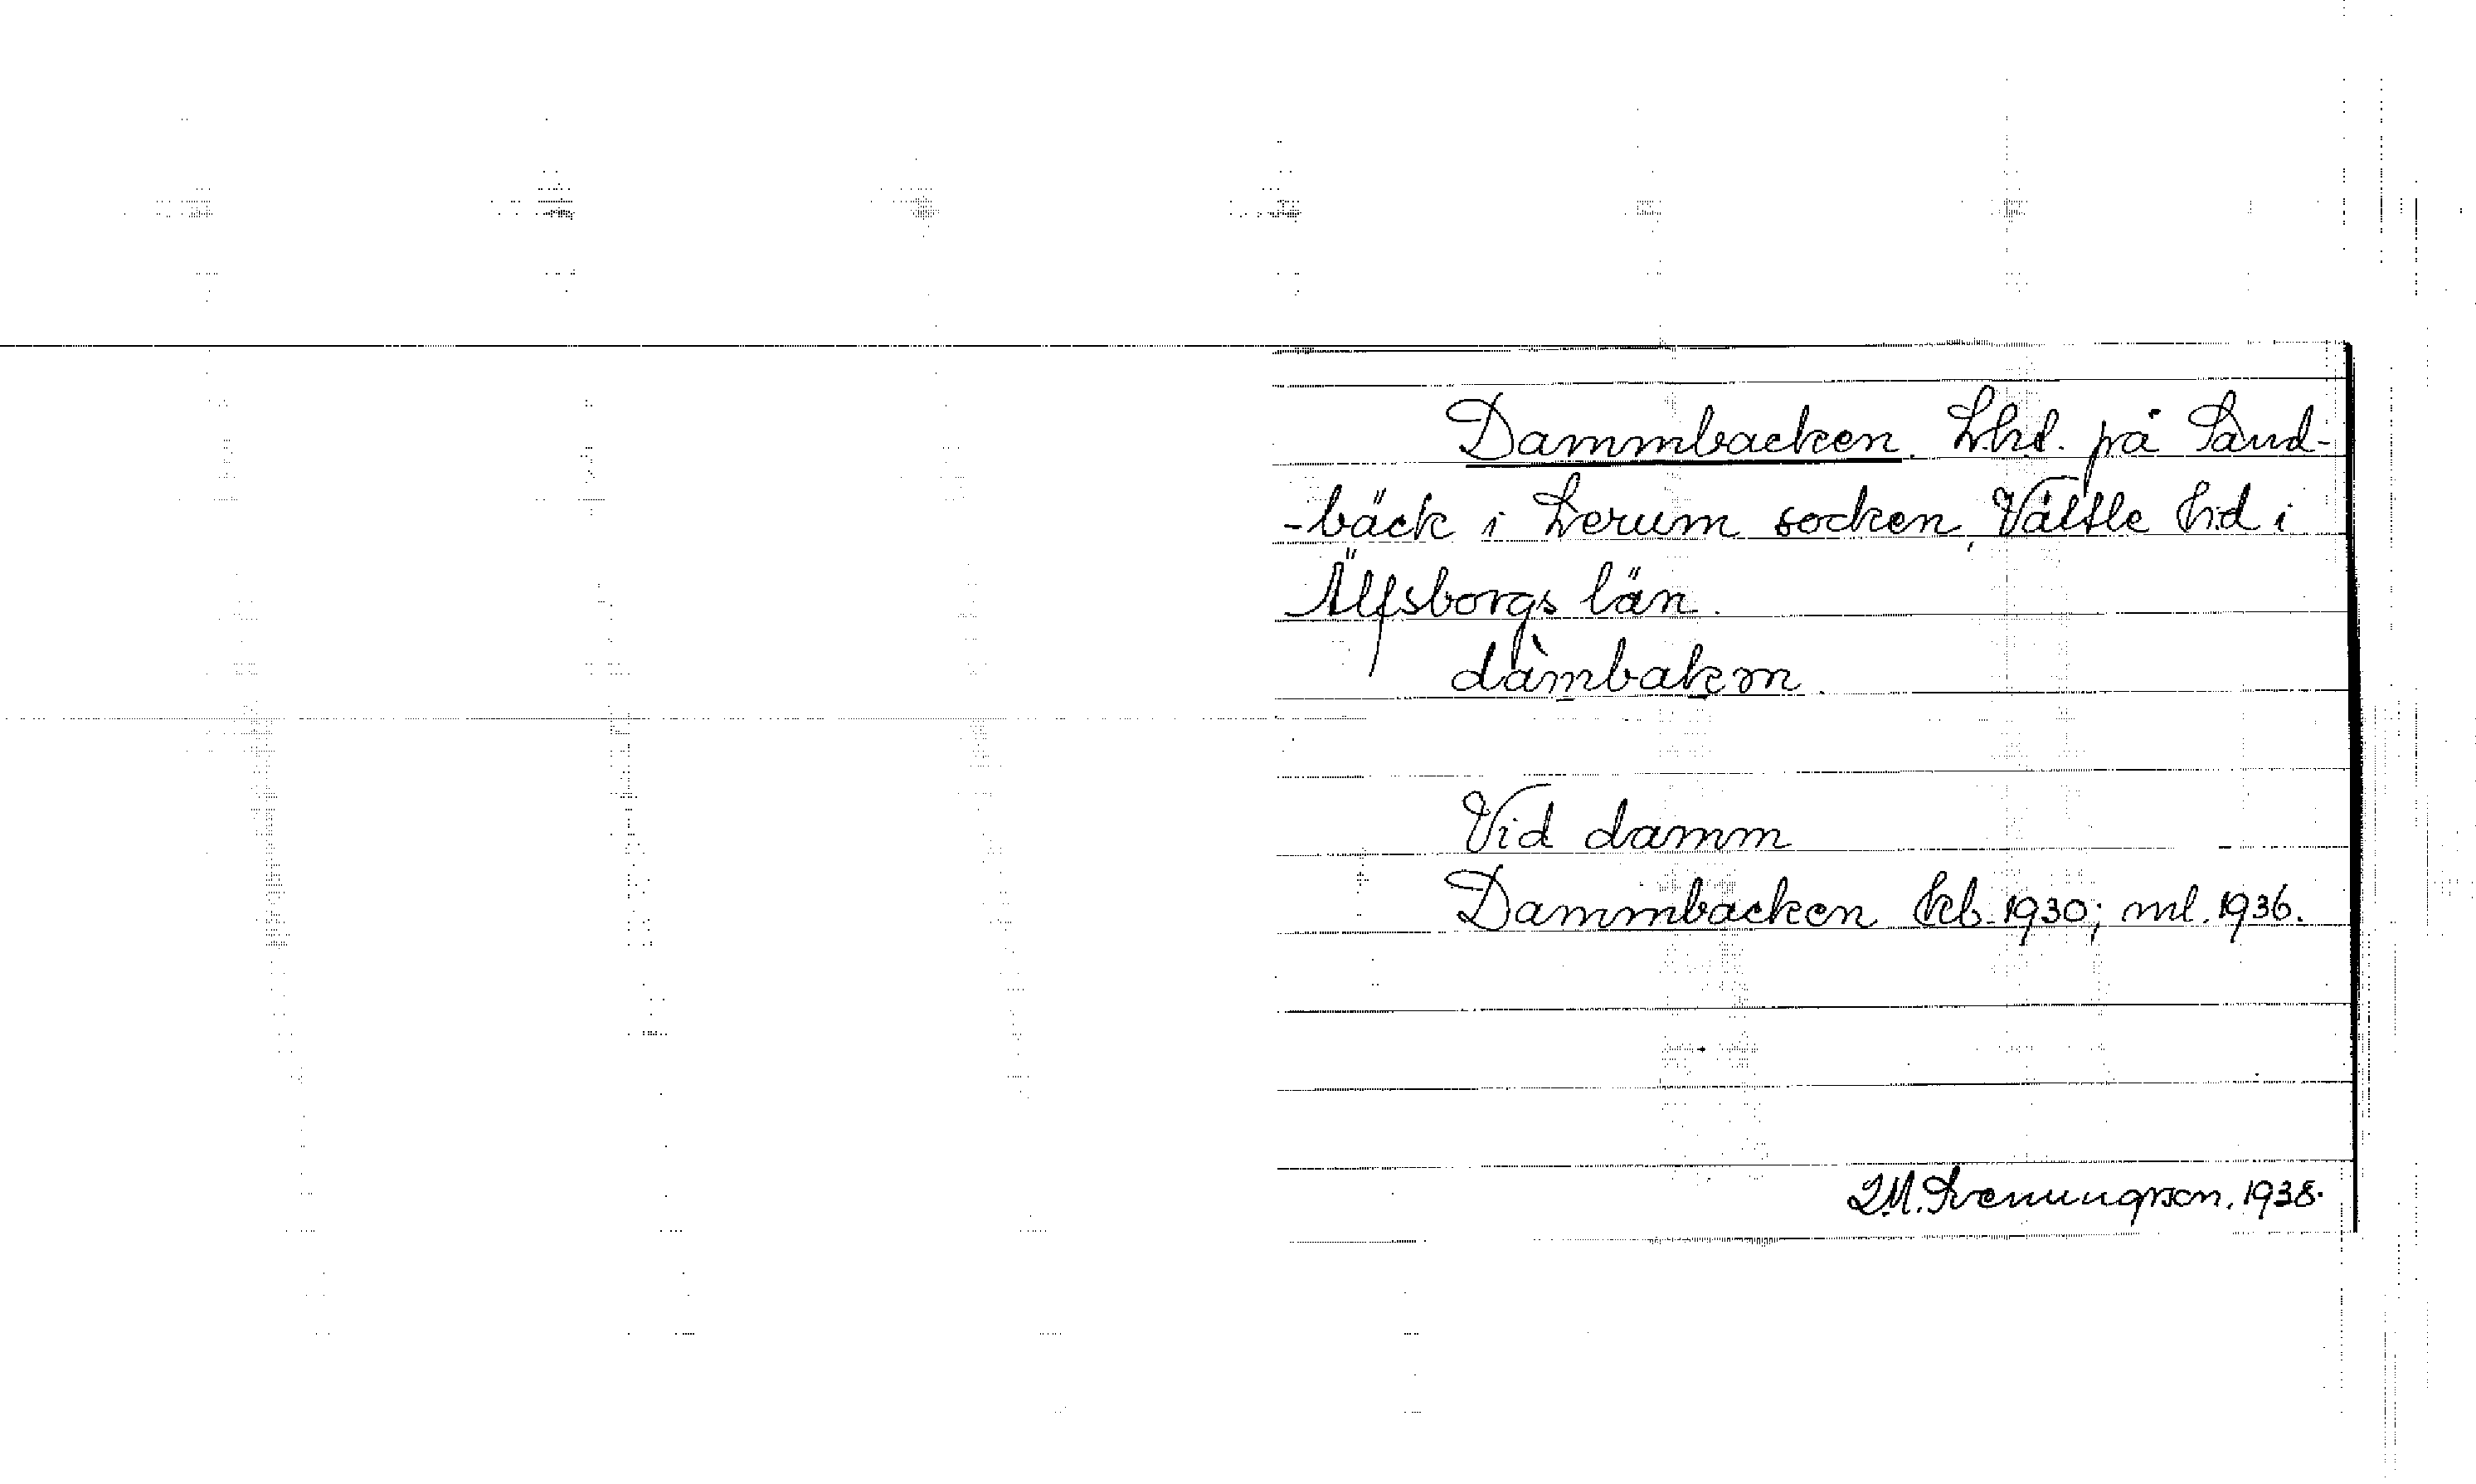 Dammbacken. Lhd. på Sand-
-bäck i Lerum socken, Vättle hd i
Älfsborgs län.
dàmbakən
Vid damm
Dammbacken kb. 1930; ml. 1936.
I.M. Svenungsson. 1938.